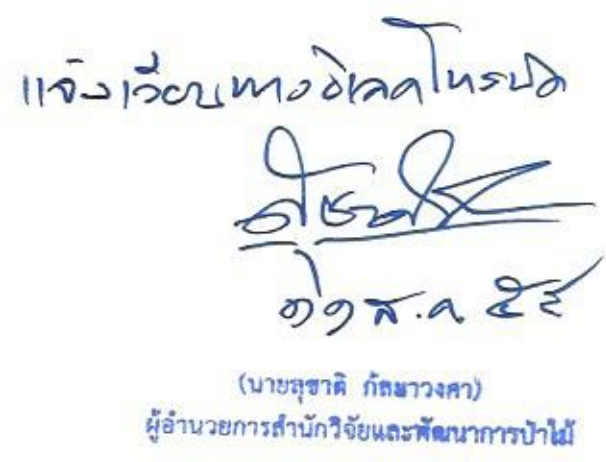 แจ้งเวียนทางอิเลคโทรนิค
๑๑ ส.ค. ๕๔
(นายสุชาติ กัลยาวงศา)
ผู้อำนวยการสำนักวิจัยและพัฒนาการป่าไม้